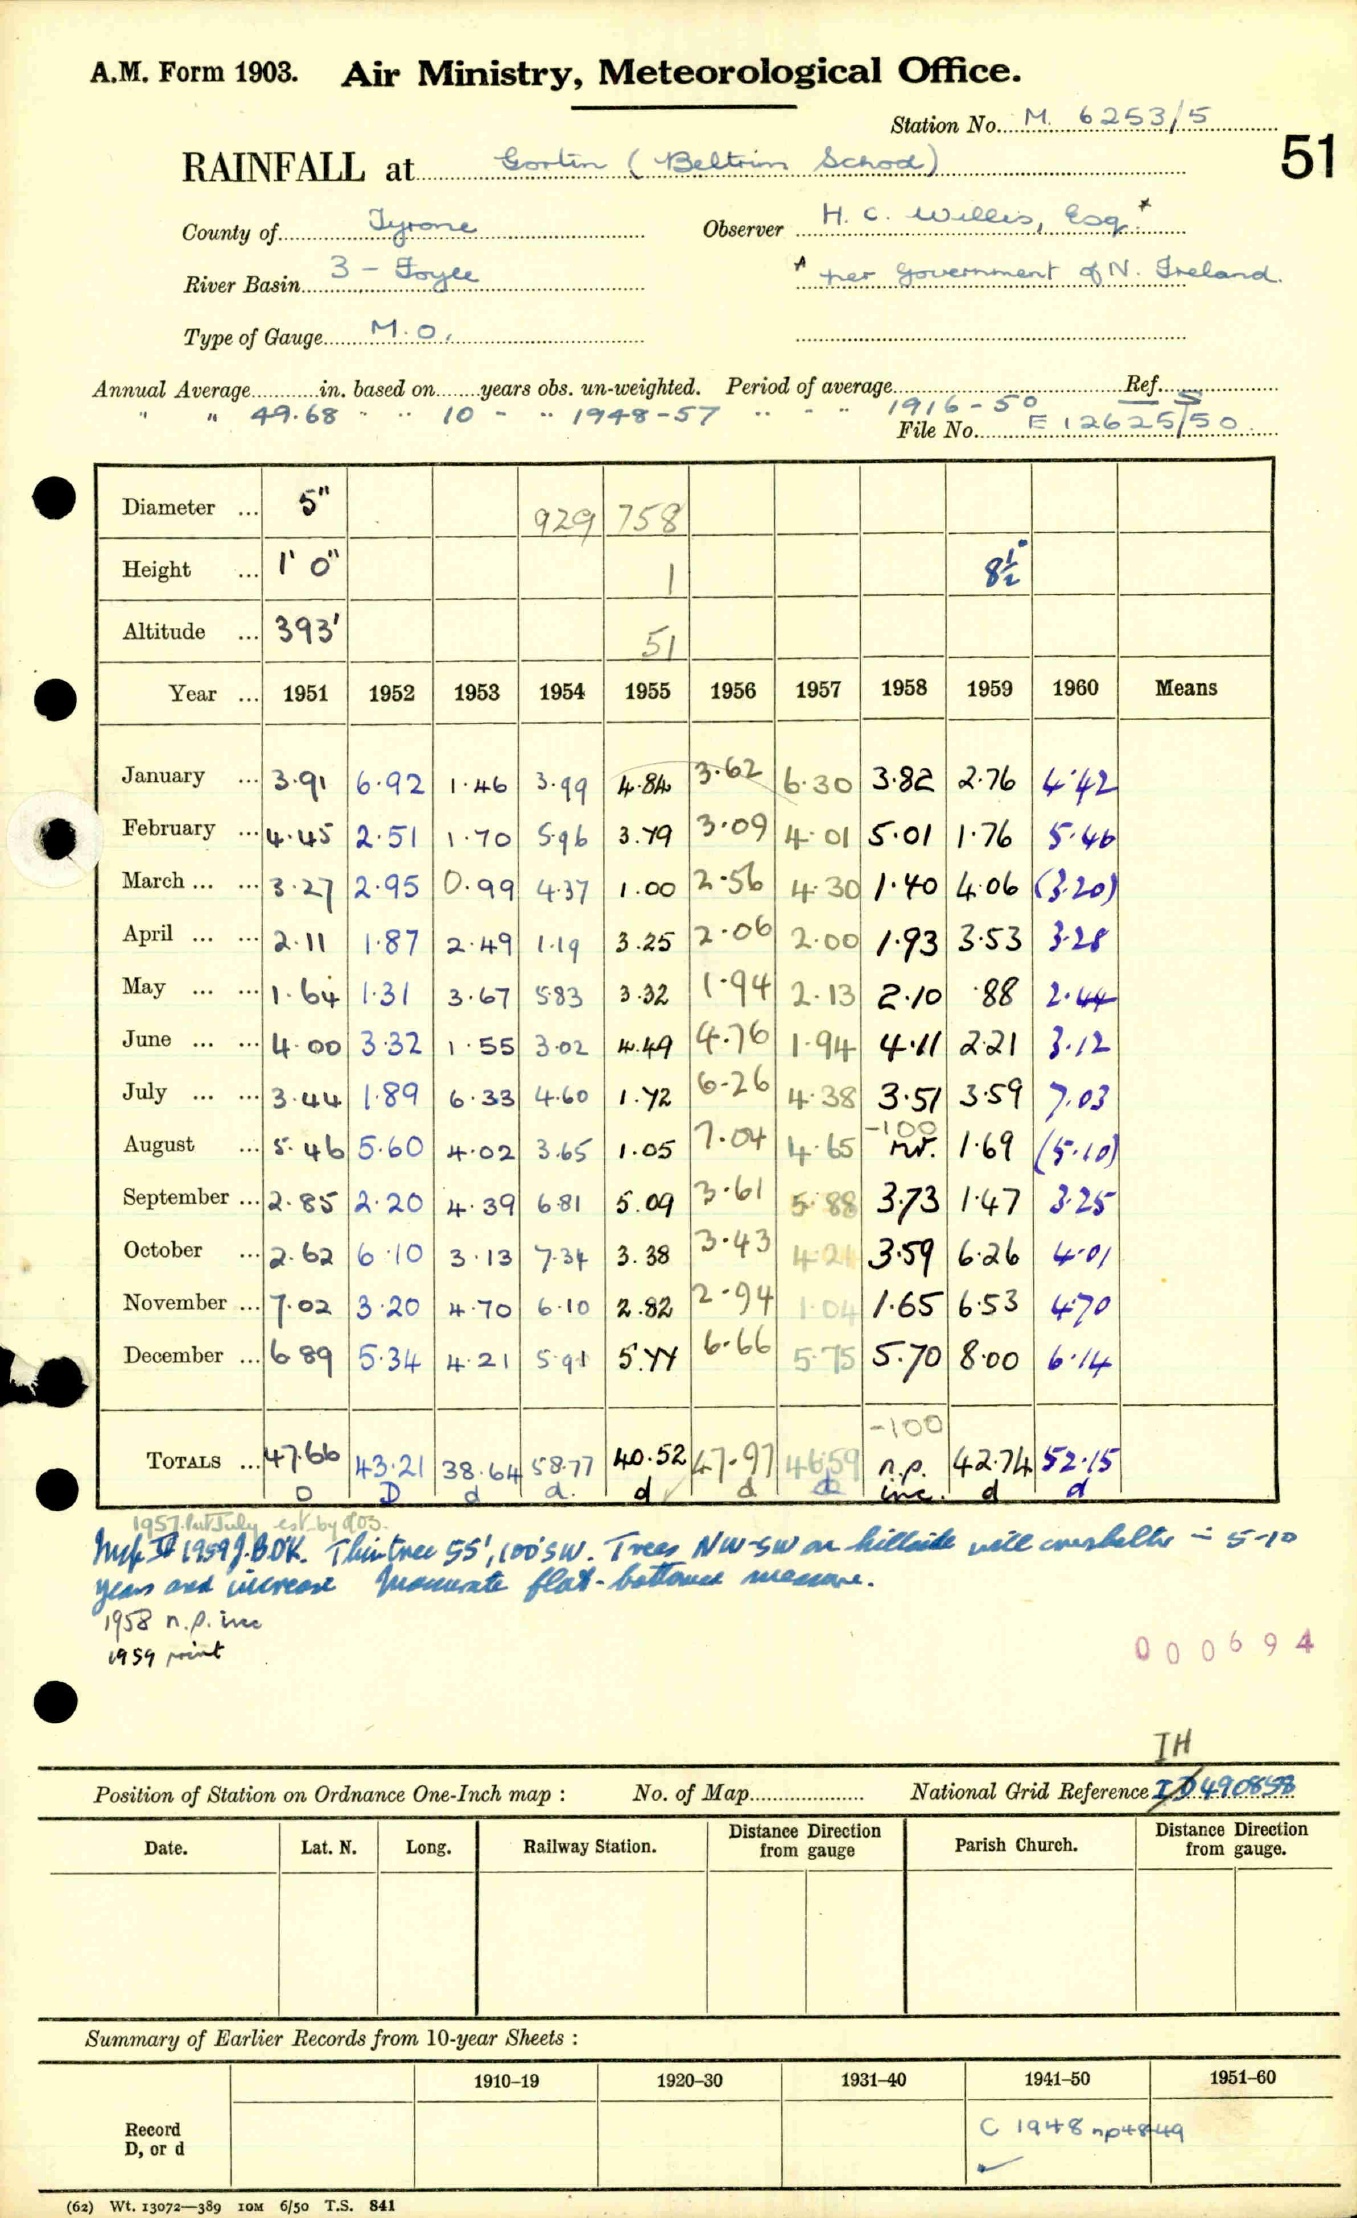 A.M. Form 1903. Air Ministry, Meteorological Office.
Station No. M. 6253/5
51
RAINFALL at Gortin (Beltrim School)
County of Tyrone Observer H. C. Willis, Esq.*
River Basin 3 - Foyle * per Government of N. Ireland.
Type of Gauge M.O.
Annual Average in. based on years obs. un-weighted. Period of average Ref.
" " 49.68 " " 10 - " 1948-57 " - " 1916-50
File No. E 12625/50
Diameter ... 5" 929 758
Height ... 1' 0" 1 8½"
Altitude ... 393' 51
Year ... 1951 1952 1953 1954 1955 1956 1957 1958 1959 1960 Means
January ... 3.91 6.92 1.46 3.99 4.84 3.62 6.30 3.82 2.76 4.42
February ... 4.45 2.51 1.70 5.96 3.79 3.09 4.01 5.01 1.76 5.46
March ... ... 3.27 2.95 0.99 4.37 1.00 2.56 4.30 1.40 4.06 (3.20)
April ... ... 2.11 1.87 2.49 1.19 3.25 2.06 2.00 1.93 3.53 3.28
May ... ... 1.64 1.31 3.67 5.83 3.32 1.94 2.13 2.10 .88 2.44
June ... ... 4.00 3.32 1.55 3.02 4.49 4.76 1.94 4.11 2.21 3.12
July ... ... 3.44 1.89 6.33 4.60 1.72 6.26 4.38 3.51 3.59 7.03
August ... 5.46 5.60 4.02 3.65 1.05 7.04 4.65 -100 nr. 1.69 (5.10)
September ... 2.85 2.20 4.39 6.81 5.09 3.61 5.88 3.73 1.47 3.25
October ... 2.62 6.10 3.13 7.34 3.38 3.43 4.21 3.59 6.26 4.01
November ... 7.02 3.20 4.70 6.10 2.82 2.94 1.04 1.65 6.53 4.70
December ... 6.89 5.34 4.21 5.91 5.77 6.66 5.75 5.70 8.00 6.14
-100
TOTALS ... 47.66 43.21 38.64 58.77 40.52 47.97 46.59 n.p. 42.74 52.15
D D d d. d d d inc. d d
1957. July est. by
1959 J.B.O'K. Thin tree 55', 100' SW. Trees NW-SW on hillside will overshelter in 5-10
years and increase flat-bottomed measure.
1958 n.p. inc
1959 print
000694
IH
Position of Station on Ordnance One-Inch map : No. of Map National Grid Reference ID 490858
Date. Lat. N. Long. Railway Station. Distance from gauge Direction Parish Church. Distance from gauge. Direction
Summary of Earlier Records from 10-year Sheets :
1910–19 1920–30 1931–40 1941–50 1951–60
Record D, or d C 1948 np 48 49
(62) Wt. 13072—389 10M 6/50 T.S. 841